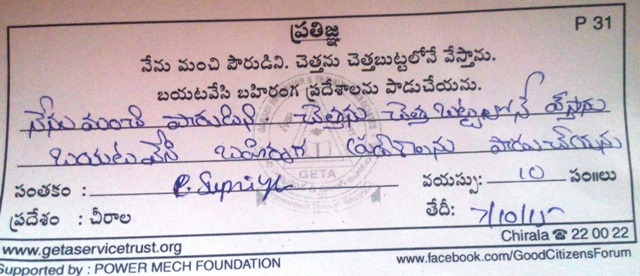 ప్రతిజ్ఞ P 31
నేను మంచి పౌరుడిని. చెత్తను చెత్తబుట్టలోనే వేస్తాను.
బయటవేసి బహిరంగ ప్రదేశాలను పాడుచేయను.
నేను మంచి పౌరుడిని చెత్తను చెత్త బుట్టలోనే వేస్తాను
బయట వేసి బహిరంగ ప్రదేశాలను పాడుచేయను
GETA
సంతకం : P. Supriya వయస్సు: 10 సం॥లు
ప్రదేశం : చీరాల తేదీ: 7/10/15
Chirala ☎ 22 00 22
www.getaservicetrust.org www.facebook.com/GoodCitizensForum
Supported by : POWER MECH FOUNDATION